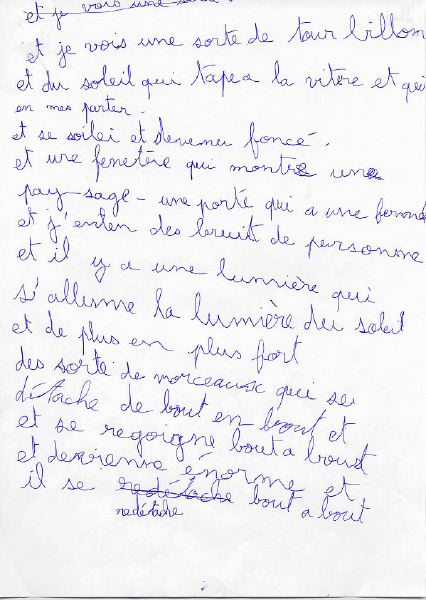 et je vois une sorte
et je vois une sorte de tour billom
et du soleil qui tape a la vitère et qui
en mes parter.
et se soilei et devenu foncé.
et une fenetère qui montre une
pay-sage - une porte qui a une fermé
et j'enten des bruit de personne
et il y a une lumière qui
s'allume la lumière du soleil
et de plus en plus fort
des sorte de morceaux qui se
détache de bout en bout et
et se regoigne bout a bout
et devienne énorme et
il se redétache bout a bout
redétache